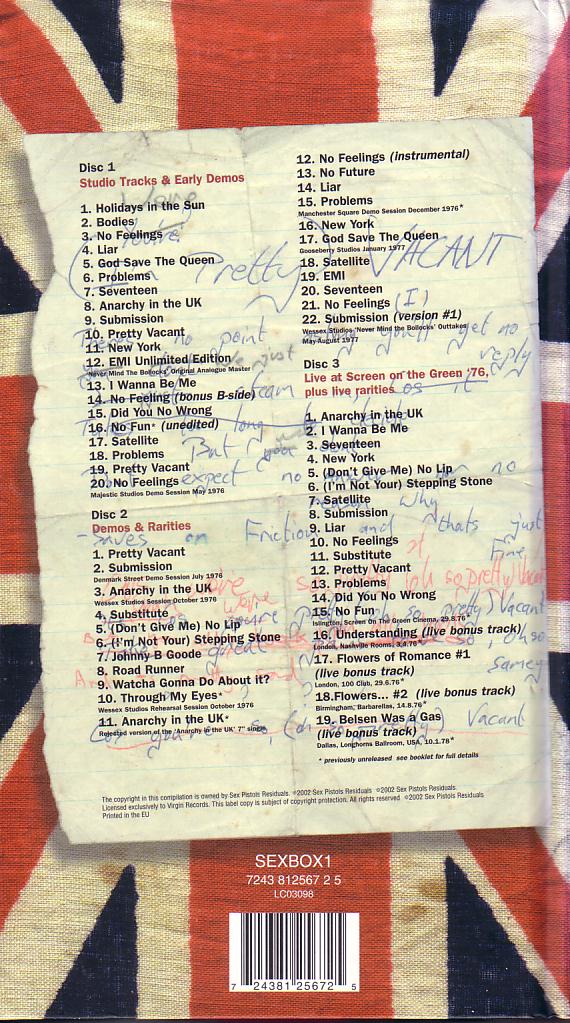 Disc 1
Studio Tracks & Early Demos
1. Holidays in the Sun
2. Bodies
3. No Feelings
4. Liar
5. God Save The Queen
6. Problems
7. Seventeen
8. Anarchy in the UK
9. Submission
10. Pretty Vacant
11. New York
12. EMI Unlimited Edition
'Never Mind The Bollocks' Original Analogue Master
13. I Wanna Be Me
14. No Feeling (bonus B-side)
15. Did You No Wrong
16. No Fun* (unedited)
17. Satellite
18. Problems
19. Pretty Vacant
20. No Feelings
Majestic Studios Demo Session May 1976
Disc 2
Demos & Rarities
1. Pretty Vacant
2. Submission
Denmark Street Demo Session July 1976
3. Anarchy in the UK
Wessex Studios Session October 1976
4. Substitute
5. (Don't Give Me) No Lip
6. (I'm Not Your) Stepping Stone
7. Johnny B Goode
8. Road Runner
9. Watcha Gonna Do About it?
10. Through My Eyes*
Wessex Studios Rehearsal Session October 1976
11. Anarchy in the UK*
Rejected version of the 'Anarchy in the UK' 7" single
12. No Feelings (instrumental)
13. No Future
14. Liar
15. Problems
Manchester Square Demo Session December 1976*
16. New York
17. God Save The Queen
Gooseberry Studios January 1977
18. Satellite
19. EMI
20. Seventeen
21. No Feelings
22. Submission (version #1)
Wessex Studios 'Never Mind the Bollocks' Outtakes
May-August 1977
Disc 3
Live at Screen on the Green '76,
plus live rarities
1. Anarchy in the UK
2. I Wanna Be Me
3. Seventeen
4. New York
5. (Don't Give Me) No Lip
6. (I'm Not Your) Stepping Stone
7. Satellite
8. Submission
9. Liar
10. No Feelings
11. Substitute
12. Pretty Vacant
13. Problems
14. Did You No Wrong
15. No Fun
Islington, Screen On The Green Cinema, 29.8.76*
16. Understanding (live bonus track)
London, Nashville Rooms, 3.4.76*
17. Flowers of Romance #1
(live bonus track)
London, 100 Club, 29.6.76*
18.Flowers... #2 (live bonus track)
Birmingham, Barbarellas, 14.8.76*
19. Belsen Was a Gas
(live bonus track)
Dallas, Longhorns Ballroom, USA, 10.1.78*
* previously unreleased see booklet for full details
Pretty VACANT
no point
you'll get no
reply
just
But
expect no
no
why
Friction and thats just
Fine
so pretty) Vacant
Vacant
The copyright in this compilation is owned by Sex Pistols Residuals. ℗2002 Sex Pistols Residuals. ©2002 Sex Pistols Residuals.
Licensed exclusively to Virgin Records. This label copy is subject of copyright protection. All rights reserved ©2002 Sex Pistols Residuals
Printed in the EU
SEXBOX1
7243 812567 2 5
LC03098
7 24381 25672 5